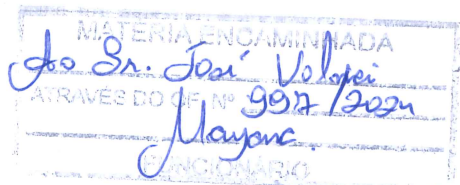 MATÉRIA ENCAMINHADA
Ao Sr. José Volpi
ATRAVÉS DO OF. Nº 997/2024
Mayana.
FUNCIONÁRIO